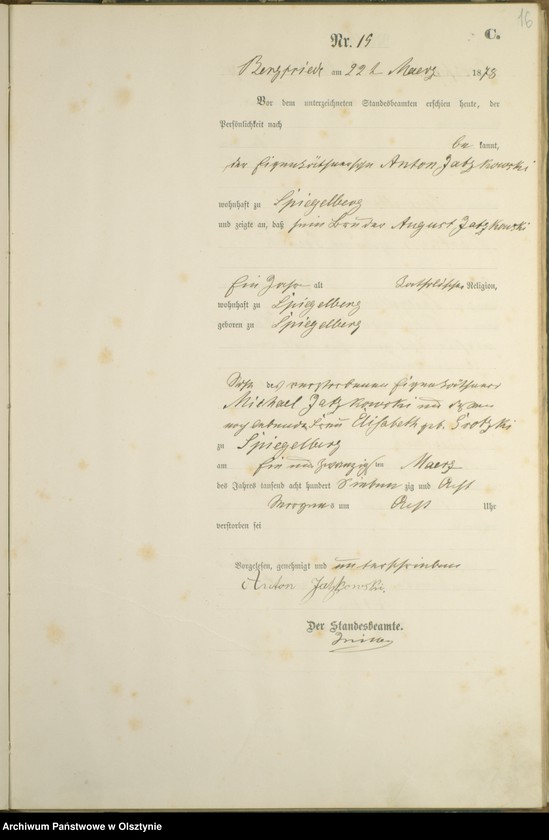 16
C.
Nr. 15
Bergfriede am 22 t Maerz 1878
Vor dem unterzeichneten Standesbeamten erschien heute, der
Persönlichkeit nach
be kannt,
der Eigenkäthnersohn Anton Jatzkowski
wohnhaft zu Spiegelberg
und zeigte an, daß sein Bruder August Jatzkowski
Ein Jahr alt katholischer Religion,
wohnhaft zu Spiegelberg
geboren zu Spiegelberg
Sohn des verstorbenen Eigenkäthners
Michael Jatzkowski und dessen
noch lebende Frau Elisabeth geb. Grotzki
zu Spiegelberg
am Ein und zwanzigsten Maerz
des Jahres tausend acht hundert Sieben zig und Acht
Morgens um Acht Uhr
verstorben sei
Vorgelesen, genehmigt und unterschrieben
Anton Jatzkowski.
Der Standesbeamte.
Archiwum Państwowe w Olsztynie